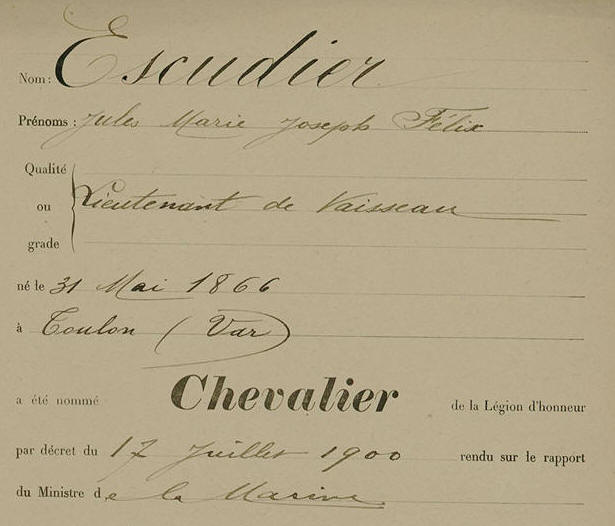 Nom: Escudier
Prénoms: Jules Marie Joseph Félix
Qualité
ou Lieutenant de Vaisseau
grade
né le 31 Mai 1866
à Toulon (Var)
a été nommé Chevalier de la Légion d'honneur
par décret du 17 Juillet 1900 rendu sur le rapport
du Ministre de la Marine